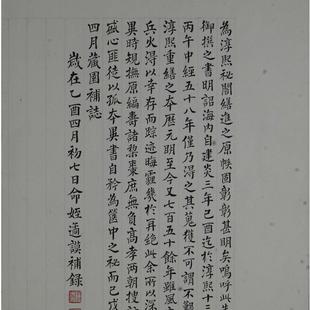 為淳熙秘閣繕進之原帙固彰彰甚明矣嗚呼此
御撰之書明詔海內自建炎三年己酉迄於淳熙十三
丙午中經五十八年僅乃得之其蒐獲不可謂不艱
淳熙重繕之本歷元明至今又七百五十餘年雖風
兵火得以幸存而踪迹晦霾幾於再絕此余所以深
異時規撫原編壽諸棃棗庶無負高孝两朝搜
盛心匪徒以孤本異書自矜為篋中之秘而已戊
四月藏園補誌
歲在乙酉四月初七日命姪適謨補錄